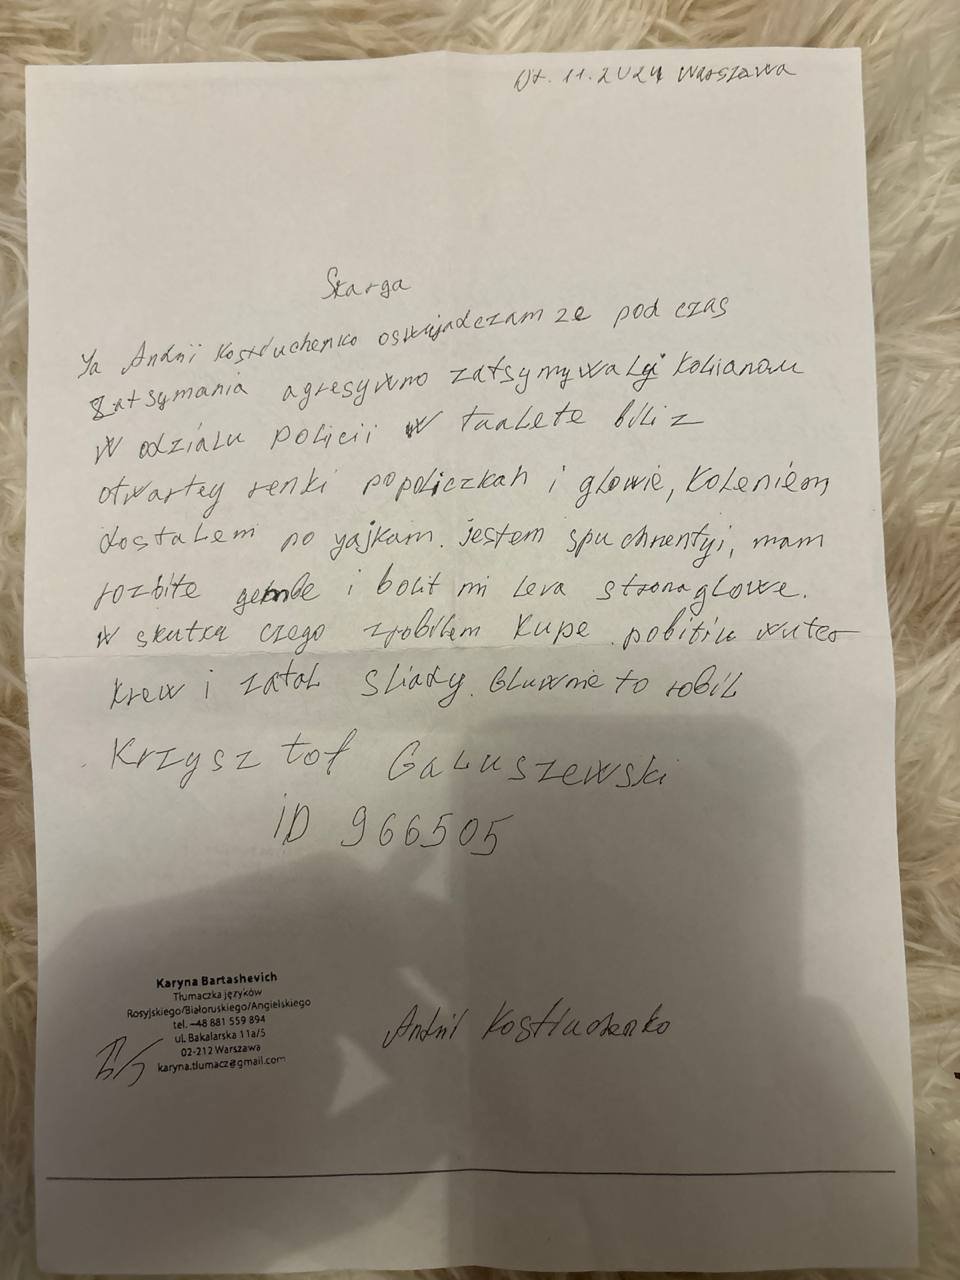 07.11.2024 Warszawa
Skarga
Ya Andrii Kostiuchenko oswijadczam ze pod czas
zatsymania agresywno zatsymywalyi kolianom
w odzialu policii w tualete bili z
otwartey renki po policzkah i glowie, koleniem
dostalem po yajkam. jestem spuchnentyi, mam
rozbite gembe i bolit mi leva strona glowe.
w skutku czego zrobilem kupe. pobitiu wuter
krew i zatal sliady. Gluwnie to robil
Krzysztof Galuszewski
iD 966505
Karyna Bartashevich
Tłumaczka języków
Rosyjskiego/Białoruskiego/Angielskiego
tel. +48 881 559 894
ul. Bakalarska 11a/5
02-212 Warszawa
karyna.tlumacz@gmail.com
Andrii Kostiuchenko